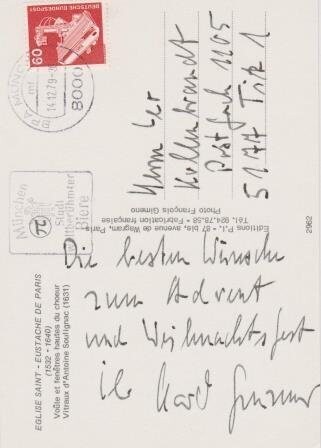 DEUTSCHE BUNDESPOST
60
MÜNCHEN
14.12.79
8000
München
Stadt
weltberühmter
Biere
Herrn
Kellenbrandt
Postfach 1105
5177 Titz 1
Editions P.I. - 87 bis, avenue de Wagram, Paris.
Tél. 924.78.58 • Fabrication française
Photo François Gimeno
2962
Die besten Wünsche
zum Advent
und Weihnachtsfest
Ihr Karl
EGLISE SAINT - EUSTACHE DE PARIS
(1532 - 1640)
Voûte et fenêtres hautes du choeur
Vitraux d'Antoine Soulignac (1631)